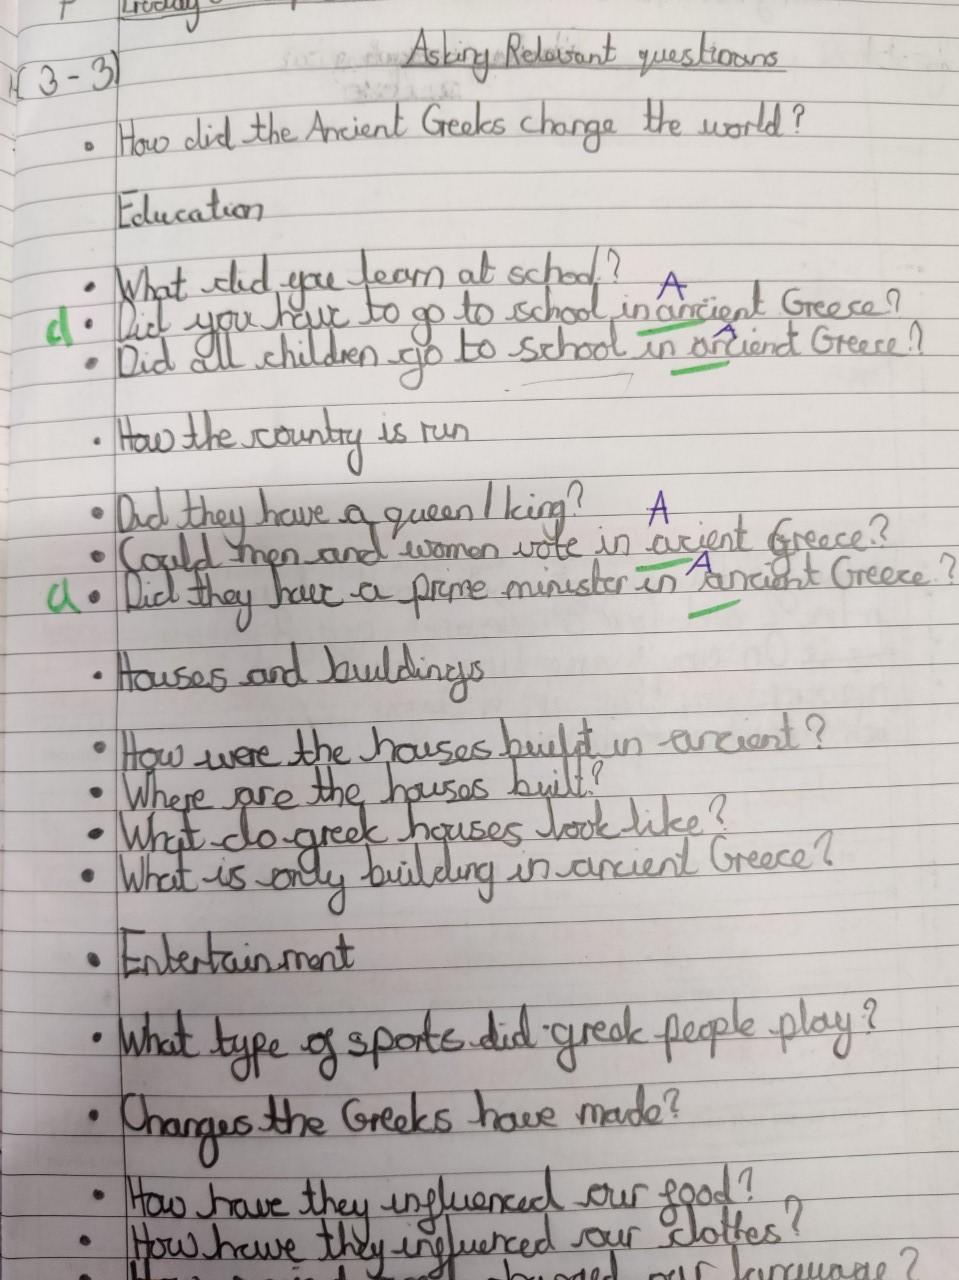 (3-3)
Asking Relavant questions
• How did the Ancient Geeks change the world?
Education
• What did you learn at school?
A
d • Did you have to go to school in ancient Greece?
A
• Did all children go to school in anciend Greece?
• How the country is run
• Did they have a queen/king?
A
• Could men and women vote in acient Greece?
A
d • Did they have a prime minister in ancient Greece?
• Houses and buildings
• How were the houses built in ancient?
• Where are the houses built?
• What do greek houses look like?
• What is only building in ancient Greece?
• Entertainment
• What type of sports did greek people play?
• Changes the Greeks have made?
• How have they influenced our food?
• How have they influenced our clothes?
our language?